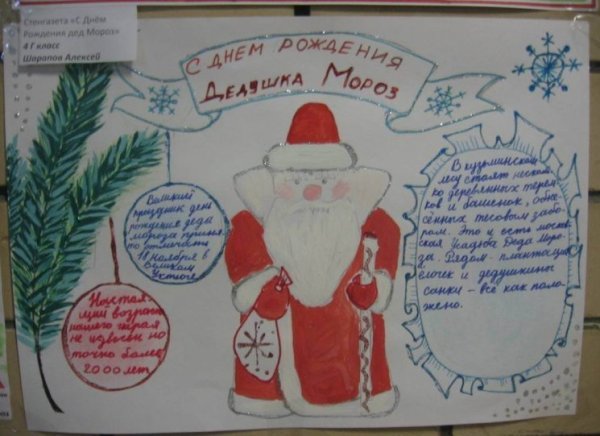 Стенгазета «С Днём
Рождения дед Мороз»
4 Г класс
Шарапов Алексей
С ДНЕМ РОЖДЕНИЯ
ДЕДУШКА МОРОЗ
Великий
праздник день
рождения деда
мороза приня-
то отмечать
18 ноября в
Великом
Устюге
Настоя-
щий возраст
нашего героя
не известен но
точно более
2000 лет
В кузьминском
лесу стоят несколь-
ко деревянных терем-
ков и башенок, обне-
сённых тесовым забо-
ром. Это и есть москов-
ская Усадьба Деда Моро-
за. Рядом - плантация
ёлочек и дедушкины
санки - всё как поло-
жено.